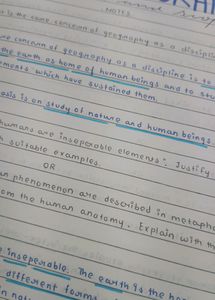 NOTES
is the core concern of geography as a discipline
core concern of geography as a discipline is to
the earth as home of human beings and to stu
ements which have sustained them.
asis is on study of nature and human beings
humans are inseperable elements". Justify
h suitable examples.
OR
an phenomenon are described in metapho
om the human anatomy. Explain with th
inseperable. The earth is the ho
different forms
in nat